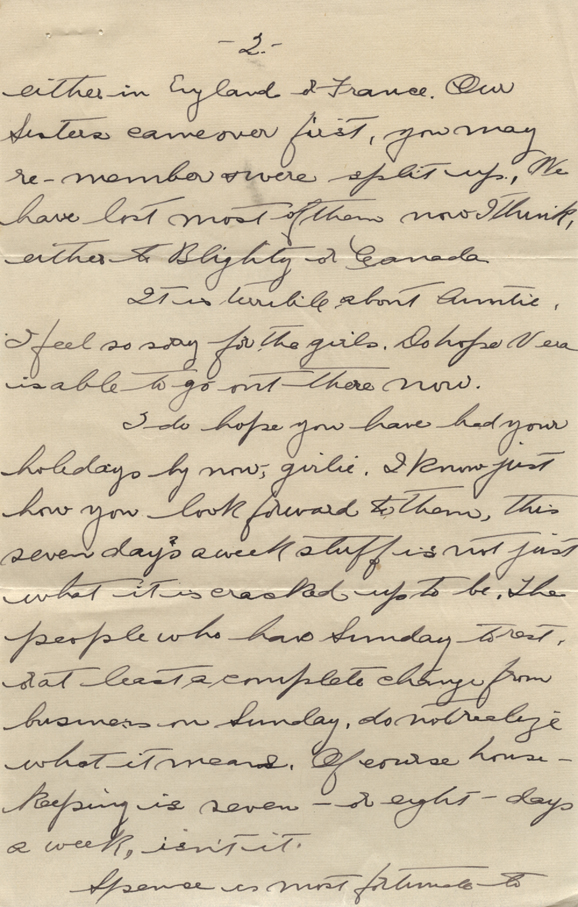 - 2. -
either in England or France. Our
Sisters came over first, you may
re-member & were split up, We
have lost most of them now I think,
either to Blighty or Canada
It is terrible about Auntie,
I feel so sorry for the girls. Do hope Vera
is able to go out there now.
I do hope you have had your
holidays by now, girlie. I know just
how you look forward to them, this
seven day's a week stuff is not just
what it is cracked up to be. The
people who have Sunday to rest,
or at least a complete change from
business on Sunday, do not realize
what it means. Of course house-
keeping is seven - or eight - days
a week, isn't it.
Spence is most fortunate to